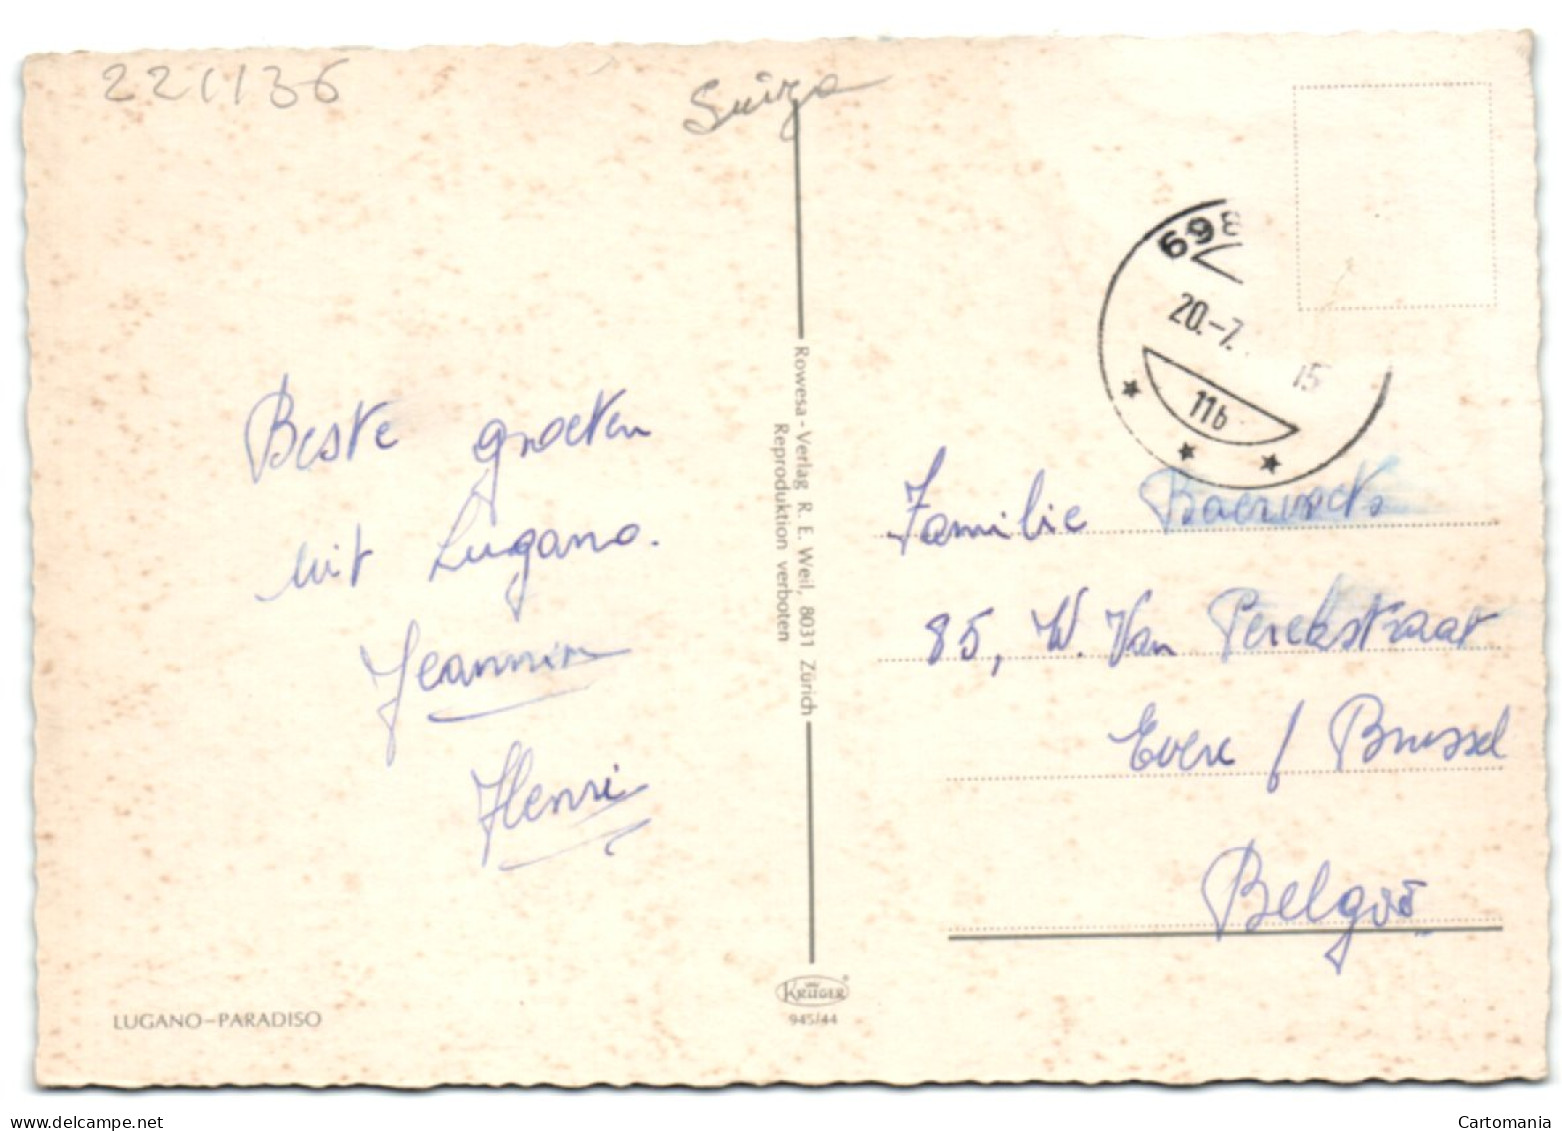 221136
Suiza
698
20.-7.
15
11b
Beste groeten
uit Lugano.
Jeannin
Henri
Rowesa-Verlag R. E. Weil, 8031 Zürich
Reproduktion verboten
Familie
85, W. Van Perckstraat
Evere / Brussel
België
KRÜGER
945/44
LUGANO-PARADISO
delcampe.net
Cartomania